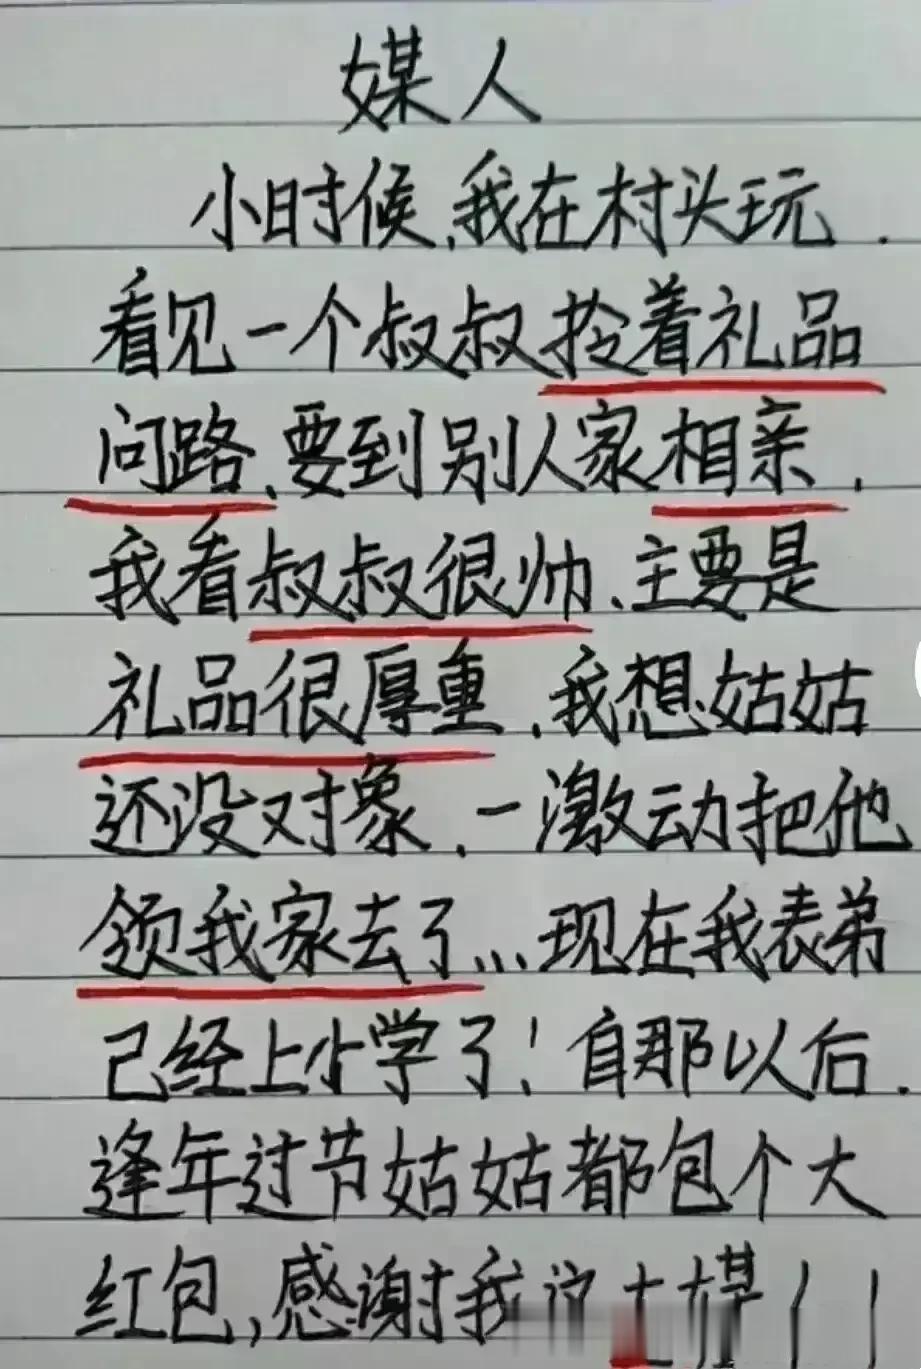 媒人
小时候,我在村头玩.
看见一个叔叔拎着礼品
问路、要到别人家相亲.
我看叔叔很帅、主要是
礼品很厚重,我想姑姑
还没对象,一激动把他
领我家去了...现在我表弟
已经上小学了!自那以后.
逢年过节姑姑都包个大
红包,感谢我